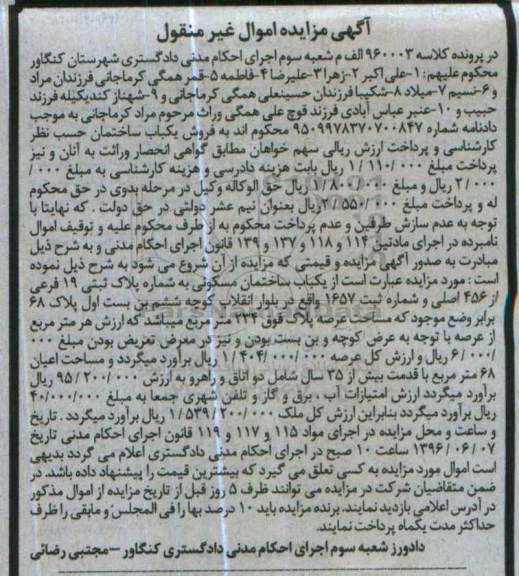 آگهی مزایده اموال غیر منقول
در پرونده کلاسه ۹۶۰۰۰۳ الف م شعبه سوم اجرای احکام مدنی دادگستری شهرستان کنگاور
محکوم علیهم: ۱-علی اکبر ۲-زهرا ۳-علیرضا ۴-فاطمه ۵-قمر همگی کرماجانی فرزندان مراد
و ۶-نسیم ۷-میلاد ۸-شکیبا فرزندان حسینعلی همگی کرماجانی و ۹-شهناز کندیکیله فرزند
حبیب و ۱۰-عنبر عباس آبادی فرزند قوچ علی همگی وراث مرحوم مراد کرماجانی به موجب
دادنامه شماره ۹۵۰۹۹۷۸۳۷۰۷۰۰۸۴۷ محکوم اند به فروش یکباب ساختمان حسب نظر
کارشناسی و پرداخت ارزش ریالی سهم خواهان مطابق گواهی انحصار وراثت به آنان و نیز
پرداخت مبلغ ۱/۱۱۰/۰۰۰ ریال بابت هزینه دادرسی و هزینه کارشناسی به مبلغ ۰۰۰/
۲/۰۰۰ ریال و مبلغ ۱/۸۰۰/۰۰۰ ریال حق الوکاله وکیل در مرحله بدوی در حق محکوم
له و پرداخت مبلغ ۲/۵۵۰/۰۰۰ ریال بعنوان نیم عشر دولتی در حق دولت . که نهایتا با
توجه به عدم سازش طرفین و عدم پرداخت محکوم به از طرف محکوم علیه و توقیف اموال
نامبرده در اجرای مادتین ۱۱۴ و ۱۱۸ و ۱۳۷ و ۱۳۹ قانون اجرای احکام مدنی و به شرح ذیل
مبادرت به صدور آگهی مزایده و قیمتی که مزایده از آن شروع می شود به شرح ذیل نموده
است : مورد مزایده عبارت است از یکباب ساختمان مسکونی به شماره پلاک ثبتی ۱۹ فرعی
از ۴۵۶ اصلی و شماره ثبت ۱۶۵۷ واقع در بلوار انقلاب کوچه ششم بن بست اول پلاک ۶۸
برابر وضع موجود که مساحت عرصه پلاک فوق ۲۳۴ متر مربع میباشد که ارزش هر متر مربع
از عرصه با توجه به عرض کوچه و بن بست بودن و نیز در معرض تعریض بودن مبلغ ۰۰۰
/۶/۰۰۰ ریال و ارزش کل عرصه ۱/۴۰۴/۰۰۰/۰۰۰ ریال برآورد میگردد و مساحت اعیان
۶۸ متر مربع با قدمت بیش از ۳۵ سال شامل دو اتاق و راهرو به ارزش ۹۵/۲۰۰/۰۰۰ ریال
برآورد میگردد ارزش امتیازات آب ، برق و گاز و تلفن شهری جمعا به مبلغ ۴۰/۰۰۰/۰۰۰
ریال برآورد میگردد بنابراین ارزش کل ملک ۱/۵۳۹/۲۰۰/۰۰۰ ریال برآورد میگردد . تاریخ
و ساعت و محل مزایده در اجرای مواد ۱۱۵ و ۱۱۷ و ۱۱۹ قانون اجرای احکام مدنی تاریخ
۱۳۹۶/۰۶/۰۷ ساعت ۱۰ صبح در اجرای احکام مدنی دادگستری اعلام می گردد بدیهی
است اموال مورد مزایده به کسی تعلق می گیرد که بیشترین قیمت را پیشنهاد داده باشد. در
ضمن متقاضیان شرکت در مزایده می توانند ظرف ۵ روز قبل از تاریخ مزایده از اموال مذکور
در آدرس اعلامی بازدید نمایند. برنده مزایده باید ۱۰ درصد بها را فی المجلس و مابقی را ظرف
حداکثر مدت یکماه پرداخت نمایند.
دادورز شعبه سوم اجرای احکام مدنی دادگستری کنگاور - مجتبی رضائی